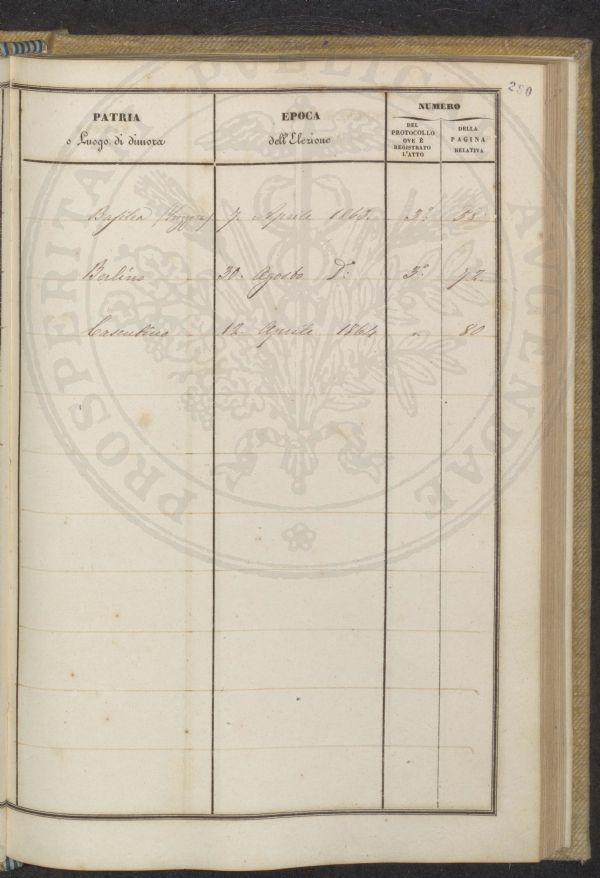 280
PATRIA
o Luogo di dimora
EPOCA
dell'Elezione
NUMERO
DEL
PROTOCOLLO
OVE È
REGISTRATO
L'ATTO
DELLA
PAGINA
RELATIVA
Basilea 7. Aprile 1863. 3.°
Berlino 30. Agosto D.° 3.° 72
Casentino 12. Aprile 1864 " 80
PROSPERITATI PUBLICAE AUGENDAE